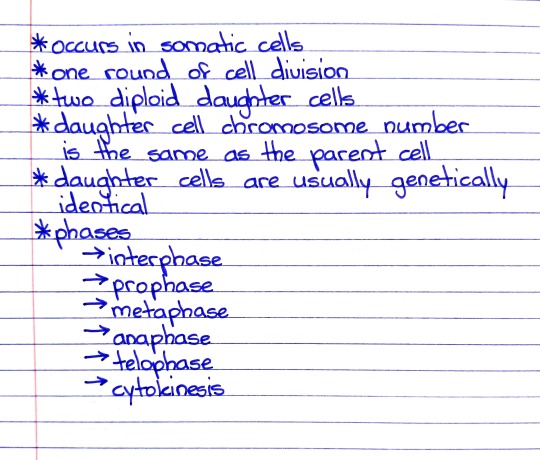 *occurs in somatic cells
*one round of cell division
*two diploid daughter cells
*daughter cell chromosome number
is the same as the parent cell
*daughter cells are usually genetically
identical
*phases
→interphase
→prophase
→metaphase
→anaphase
→telophase
→cytokinesis